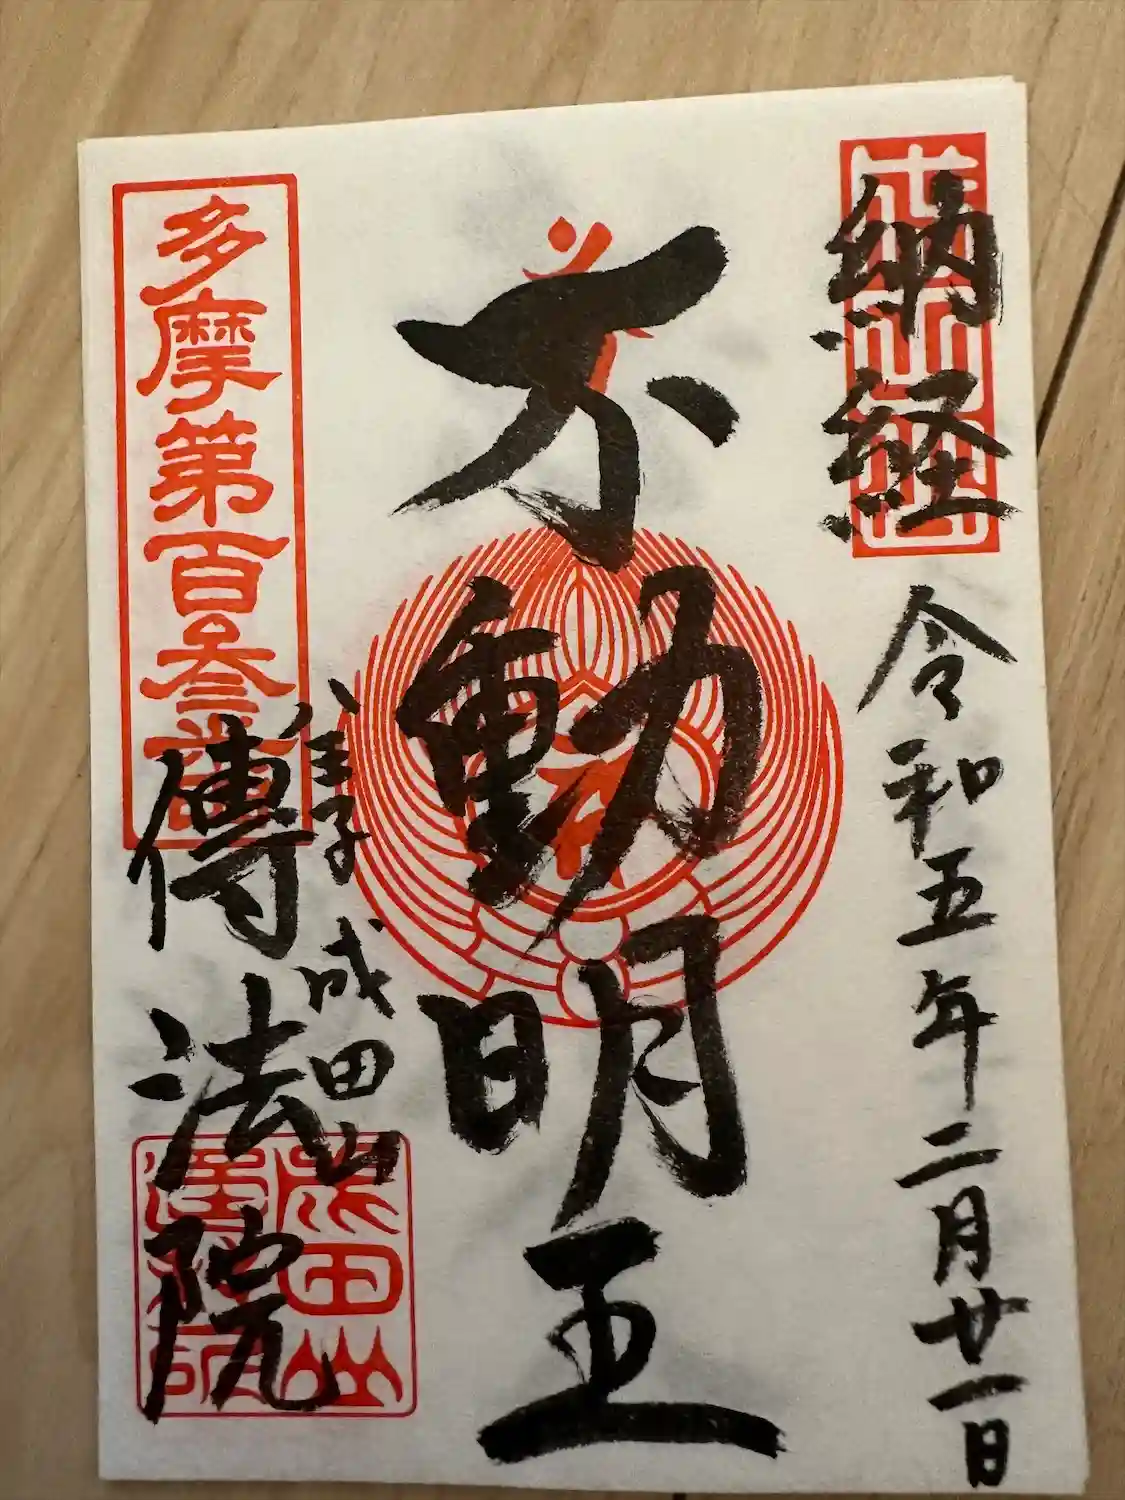 納経
令和五年二月廿一日
不動明王
多摩第百参番
八王子成田山
傳法院
成田山
傳法院